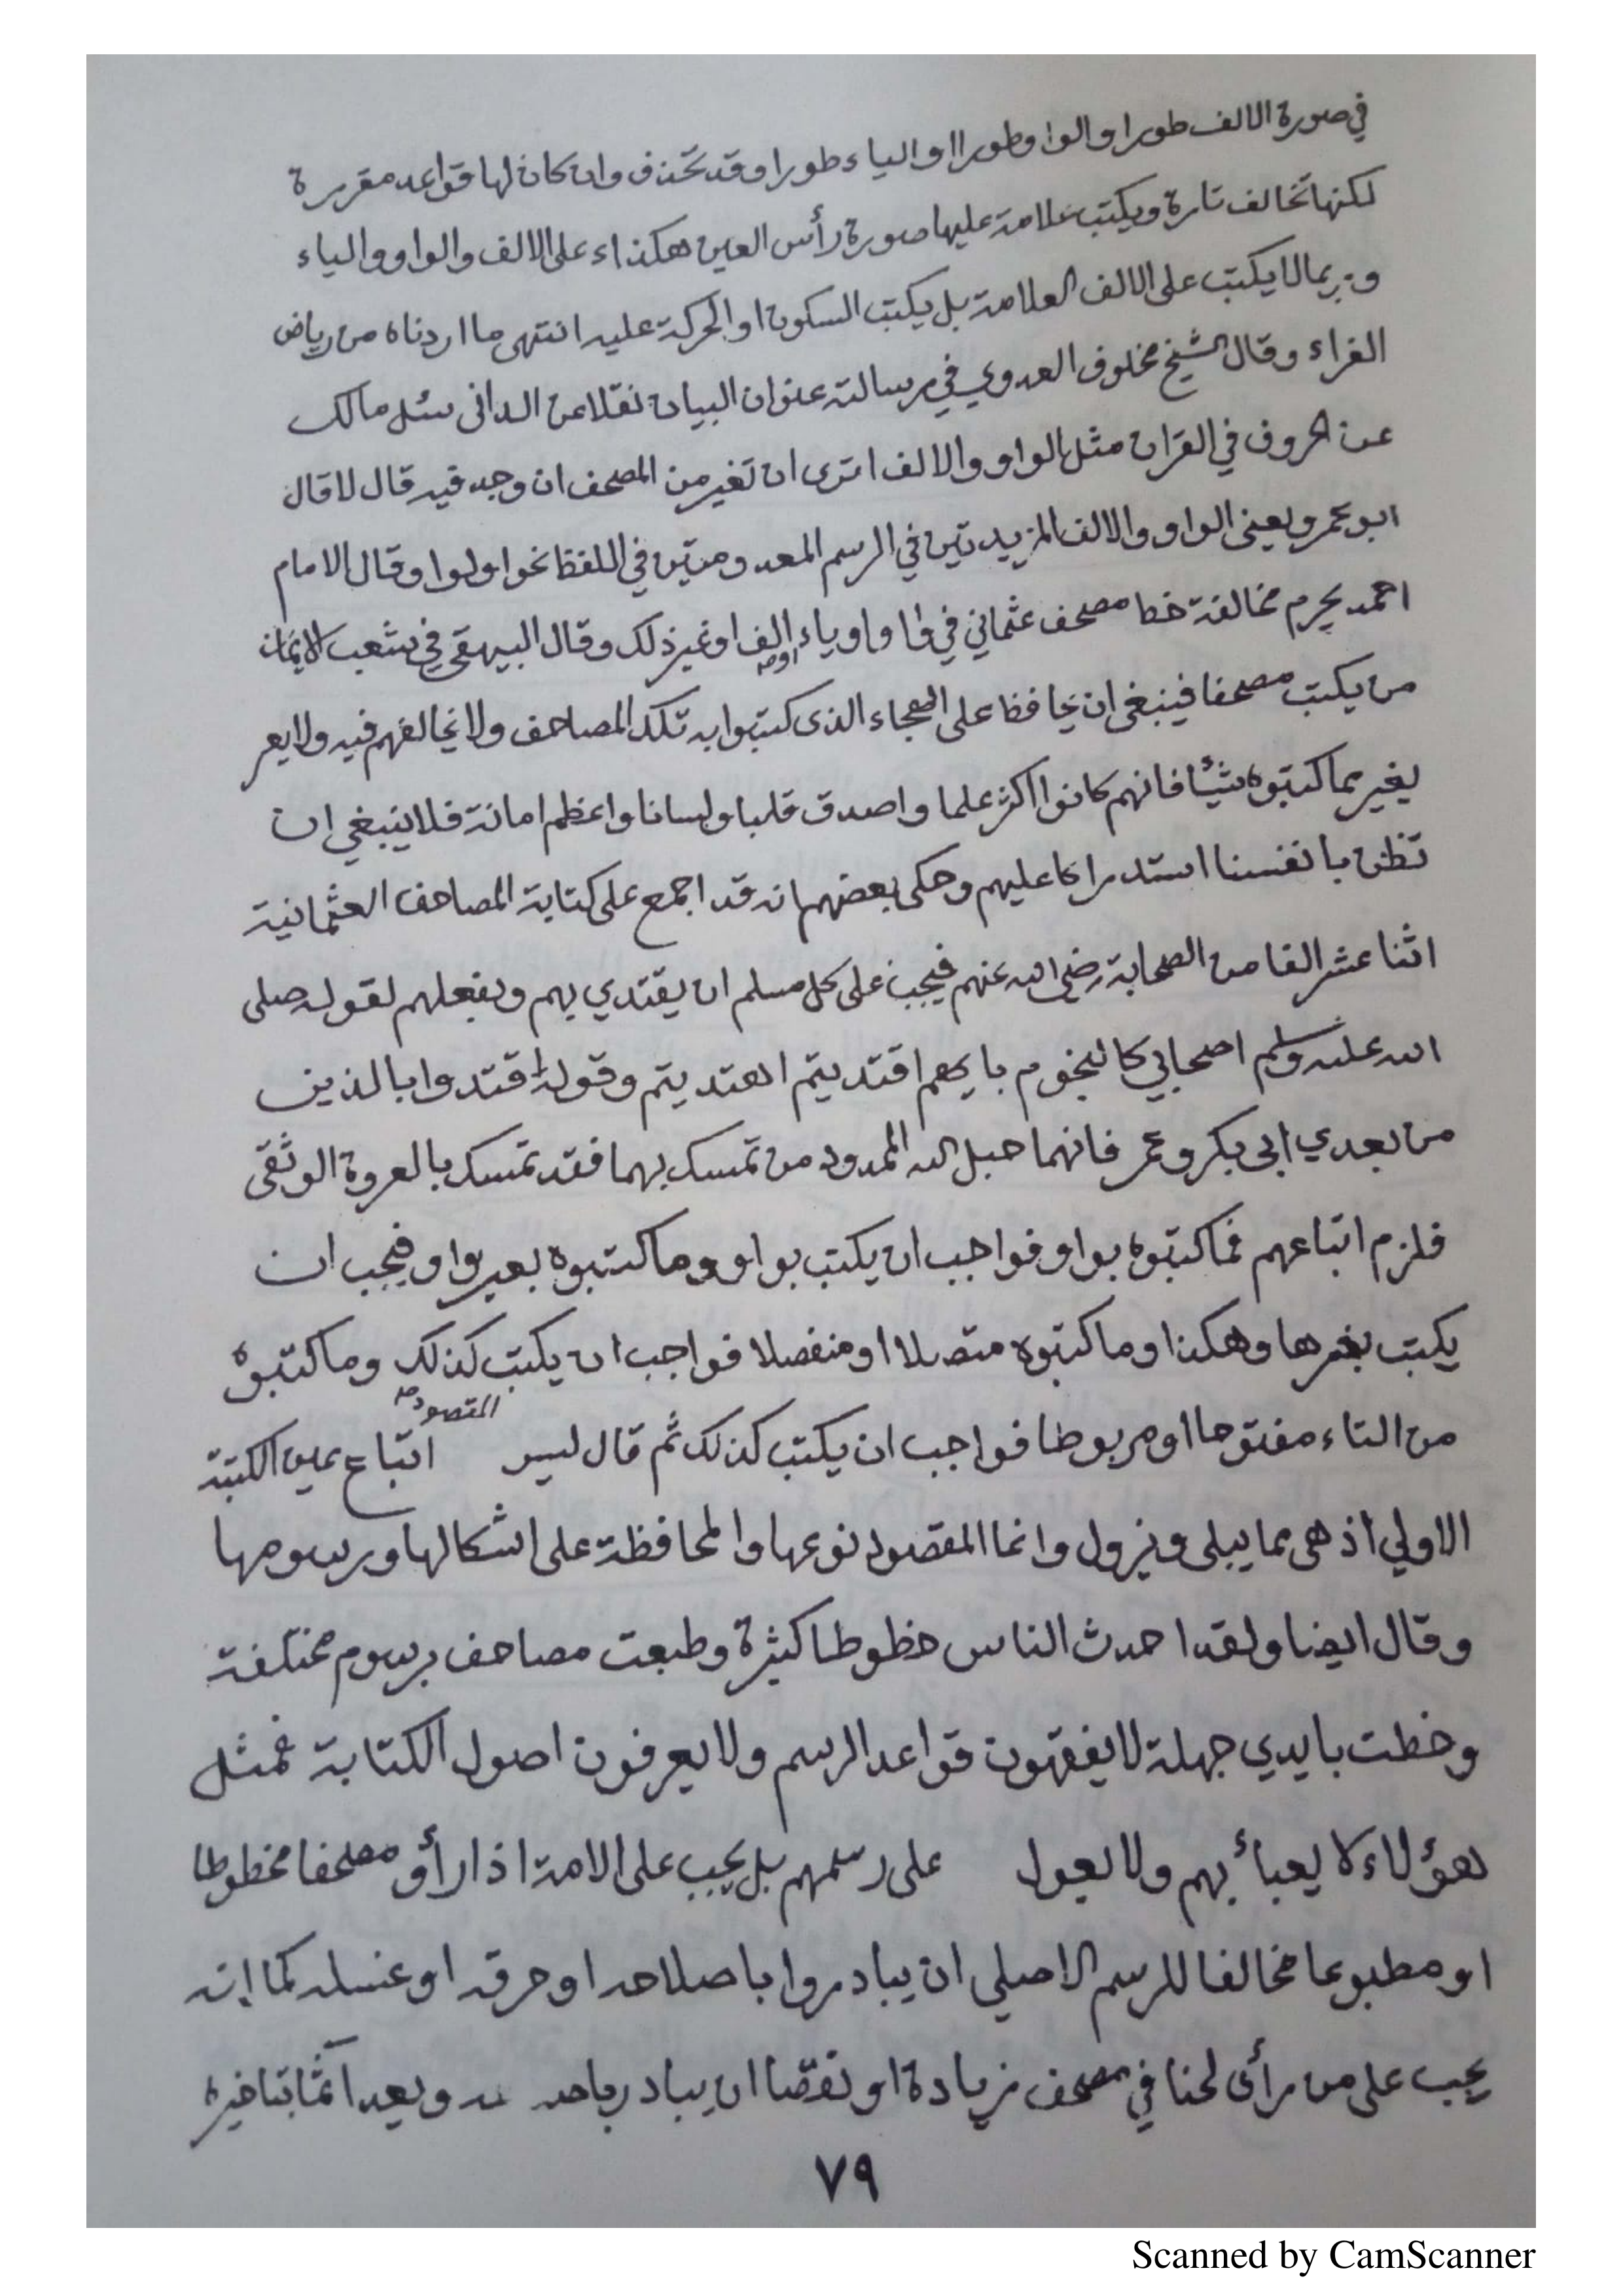 في صورة الالف طورا والوا وطورا اوالياء طورا وقد تحذف وان كان لها قواعد مقررة
لكنها تخالف تارة ويكتب علامة عليها صورة رأس العين هكذا ء على الالف والواو والياء
وربما لا يكتب على الالف العلامة بل يكتب السكون او الحركة عليه انتهى ما اردناه من رياض
القراء وقال الشيخ مخلوف العدوي في رسالته عنوان البيان نقلا عن الدانى سئل مالك
عن الحروف في القران مثل الواو والالف اترى ان تغير من المصحف ان وجد فيه قال لا قال
ابو عمرو يعنى الواو والالف المزيدتين في الرسم المعدومتين في اللفظ نحوا ولوا وقال الامام
احمد يحرم مخالفة خط مصحف عثماني في واو وياء او الف او غير ذلك وقال البيهقى في شعب الايمان
من يكتب مصحفا فينبغى ان يحافظ على الهجاء الذى كتبوا به تلك المصاحف ولا يخالفهم فيه ولا يعر
يغير مما كتبوه شيئا فانهم كانوا اكثر علما واصدق قلبا ولسانا واعظم امانة فلا ينبغي ان
تظن بانفسنا استدراكا عليهم وحكى بعضهم انه قد اجمع على كتابة المصاحف العثمانية
اثنا عشر الفا من الصحابة رضي الله عنهم فيجب على كل مسلم ان يقتدي بهم وبفعلهم لقوله صلى
الله عليه وسلم اصحابي كالنجوم بايهم اقتديتم اهتديتم وقوله اقتدوا بالذين
من بعدي ابى بكر وعمر فانهما حبل الله الممدود من تمسك بهما فقد تمسك بالعروة الوثقى
فلزم اتباعهم فما كتبوه بواو فواجب ان يكتب بواو وما كتبوه بغير واو فيجب ان
يكتب بغيرها وهكذا وما كتبوه متصلا او منفصلا فواجب ان يكتب كذلك وما كتبوه
من التاء مفتوحا او مربوطا فواجب ان يكتب كذلك ثم قال ليس المقصود اتباع عين الكتبة
الاولي اذ هى مما يبلى ويزول وانما المقصود نوعها والمحافظة على اشكالها ورسومها
وقال ايضا ولقد احدث الناس خطوطا كثيرة وطبعت مصاحف برسوم مختلفة
وخطت بايدي جهلة لا يفقهون قواعد الرسم ولا يعرفون اصول الكتابة فمثل
هؤلاء لا يعبأ بهم ولا يعول على رسمهم بل يجب على الامة اذا رأو مصحفا مخطوطا
او مطبوعا مخالفا للرسم الاصلي ان يبادروا باصلاحه او حرقه او غسله كما إنه
يجب على من رأى لحنا في مصحف زيادة او نقصا ان يبادر ويعد آثما بتاخيره
٧٩
Scanned by CamScanner